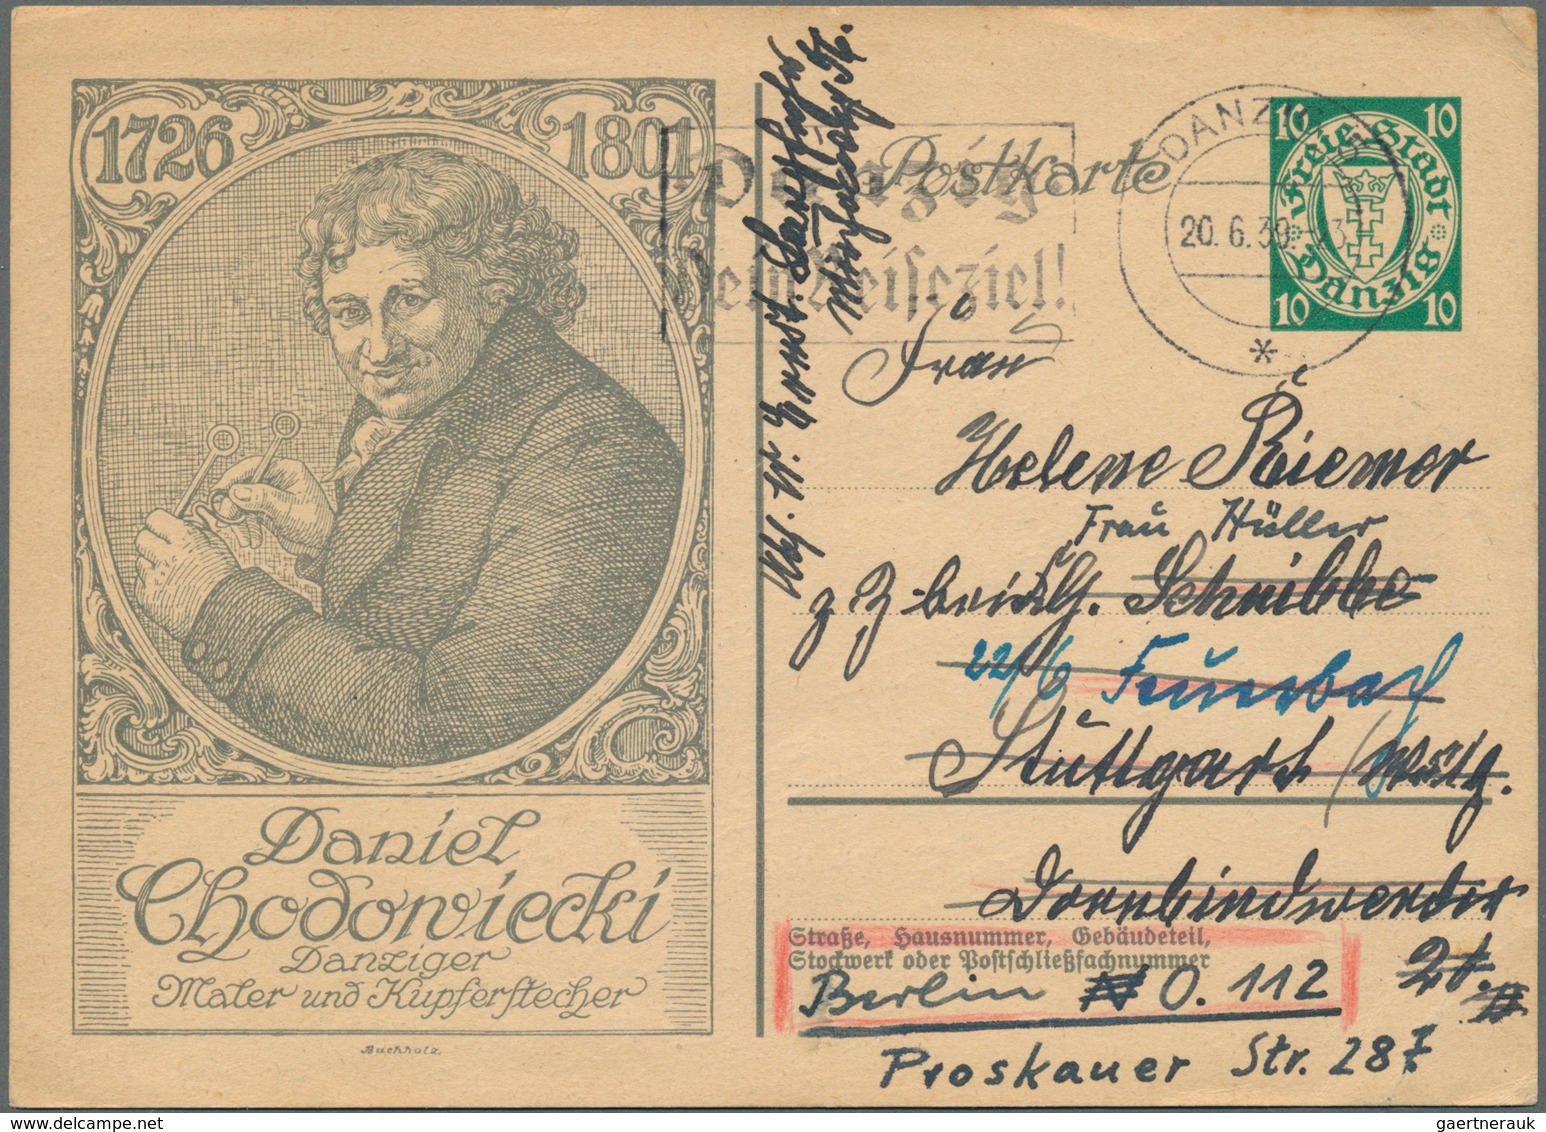 1726 1801
Daniel
Chodowiecki
Danziger
Maler und Kupferstecher
Buchholz.
Postkarte
Danzig
Dein Reiseziel!
DANZIG 5
20. 6. 39
*
10 10
Freie Stadt
Danzig
10 10
Abs. Dr. Ernst
Frau
Helene Riemer
Frau Hüller
z. Z.
22/6 Feuerbach
Stuttgart
Straße, Hausnummer, Gebäudeteil,
Stockwerk oder Postschließfachnummer
Berlin O. 112
Proskauer Str. 287
gaertnerauk